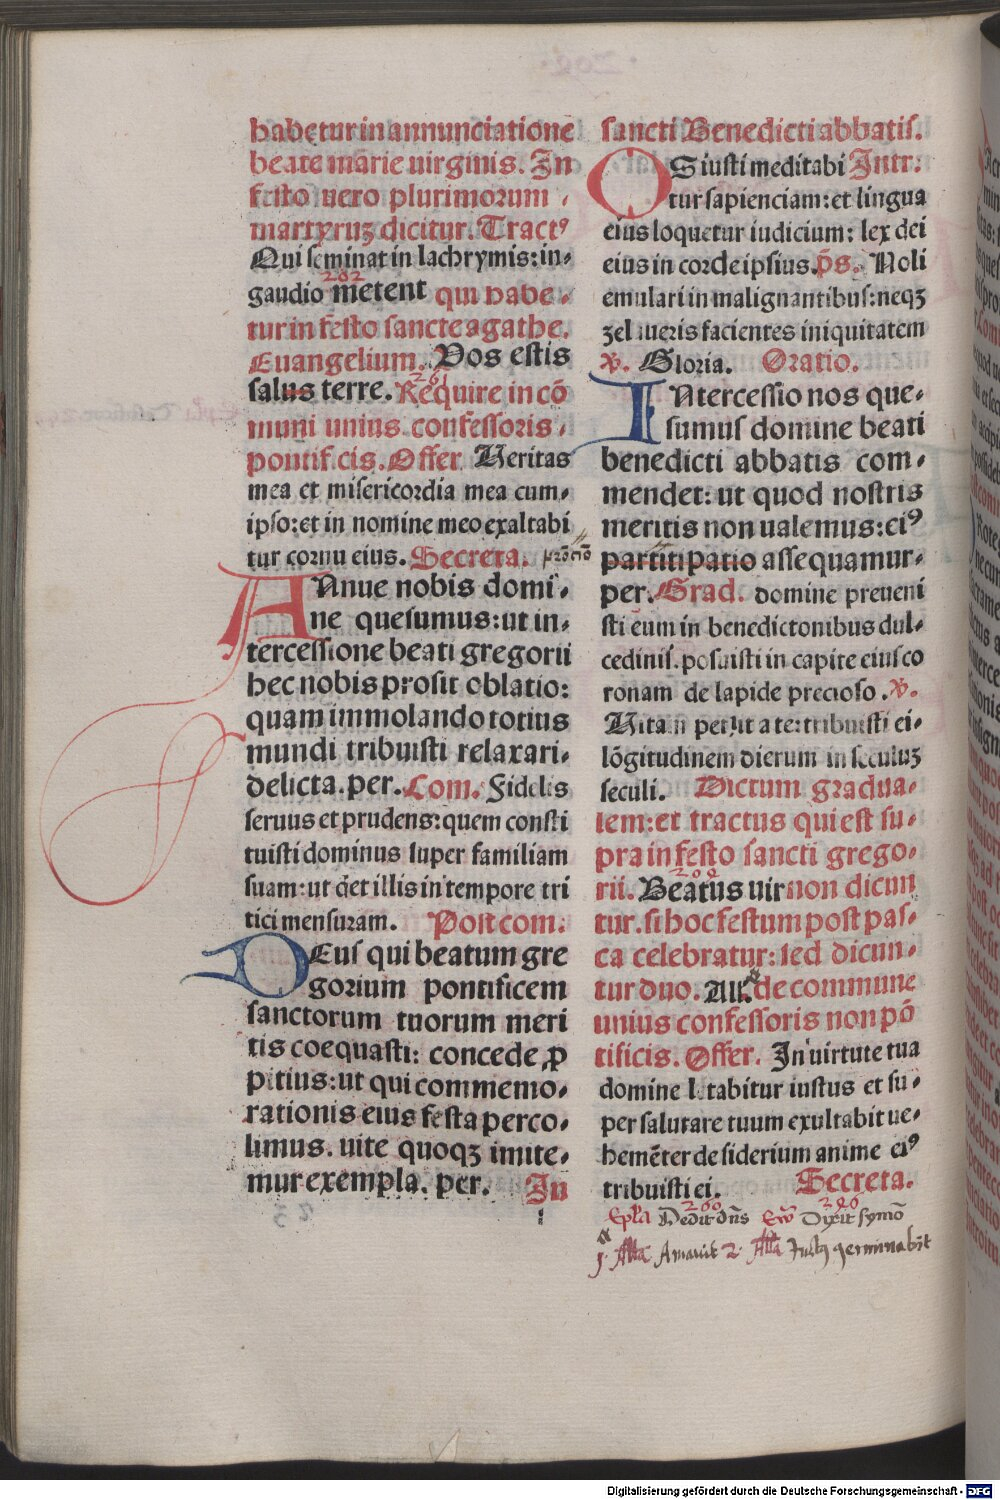 habetur in annunciatione
beate marie uirginis. In
festo uero plurimorum
martyruʒ dicitur. Tractꝰ
Qui seminat in lachrymis: in-
202
gaudio metent qui habe-
tur in festo sancte agathe.
Euangelium. Vos estis
261
salus terre. Require in cō
muni unius confessoris
pontificis. Offer. Veritas
mea et misericordia mea cum-
ipso: et in nomine meo exaltabi
tur cornu eius. Secreta.
ANnue nobis domi-
ne quesumus: ut in-
tercessione beati gregorii
hec nobis prosit oblatio:
quam immolando totius
mundi tribuisti relaxari-
delicta. per. Com. Fidelis
seruus et prudens: quem consti
tuisti dominus super familiam
suam: ut det illis in tempore tri
tici mensuram. Post com.
DEus qui beatum gre
gorium pontificem
sanctorum tuorum meri
tis coequasti: concede ꝓ
pitius: ut qui commemo-
rationis eius festa perco-
limus. uite quoqʒ imite-
mur exempla. per. In
sancti Benedicti abbatis.
OS iusti meditabi Intr:
tur sapienciam: et lingua
eius loquetur iudicium: lex dei
eius in corde ipsius. p̄s. Noli
emulari in malignantibus: neqʒ
ʒelaueris facientes iniquitatem
℣. Gloria. Oratio.
INtercessio nos que-
sumus domine beati
benedicti abbatis com-
mendet: ut quod nostris
meritis non ualemus: eiꝰ
partitipatio assequamur-
per. Grad. domine preueni
sti eum in benedictonibus dul-
cedinis. posuisti in capite eius co
ronam de lapide precioso. ℣.
Vitam petiit a te: tribuisti ei-
lōgitudinem dierum in seculuʒ
seculi. Dictum gradua-
lem: et tractus qui est su-
pra in festo sancti grego-
209
rii. Beatus uir non dicun
tur. si hoc festum post pas-
ca celebratur: sed dicun-
tur duo. All. de commune
unius confessoris non pō
tificis. Offer. In uirtute tua
domine letabitur iustus et su-
per salutare tuum exultabit ue-
hemēter desiderium anime eiꝰ
tribuisti ei. Secreta.
260 296
Epl̄a Dedit dn̄s Ew̄ Dixit symō
1. All̄a Amauit 2. All̄a Justꝰ germinabit
Digitalisierung gefördert durch die Deutsche Forschungsgemeinschaft - DFG